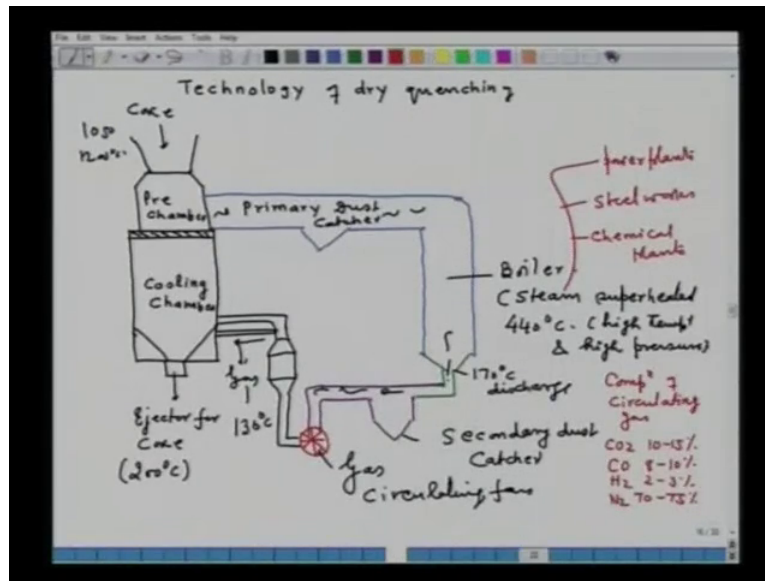 File Edit View Insert Actions Tools Help
Technology of dry quenching
Coke
1050
1200°C
Pre
Chamber
Primary Dust
Catcher
Cooling
Chamber
Gas
130°C
Ejector for
Coke
(200°C)
Gas
Circulating fans
Secondary dust
Catcher
170°C
discharge
Boiler
(Steam superheated
440°C. (high Tempr
& high pressure)
Power plants
Steel works
Chemical
plants
Compn of
Circulating
gas
CO2 10-15%
CO 8-10%
H2 2-3%
N2 70-75%
22